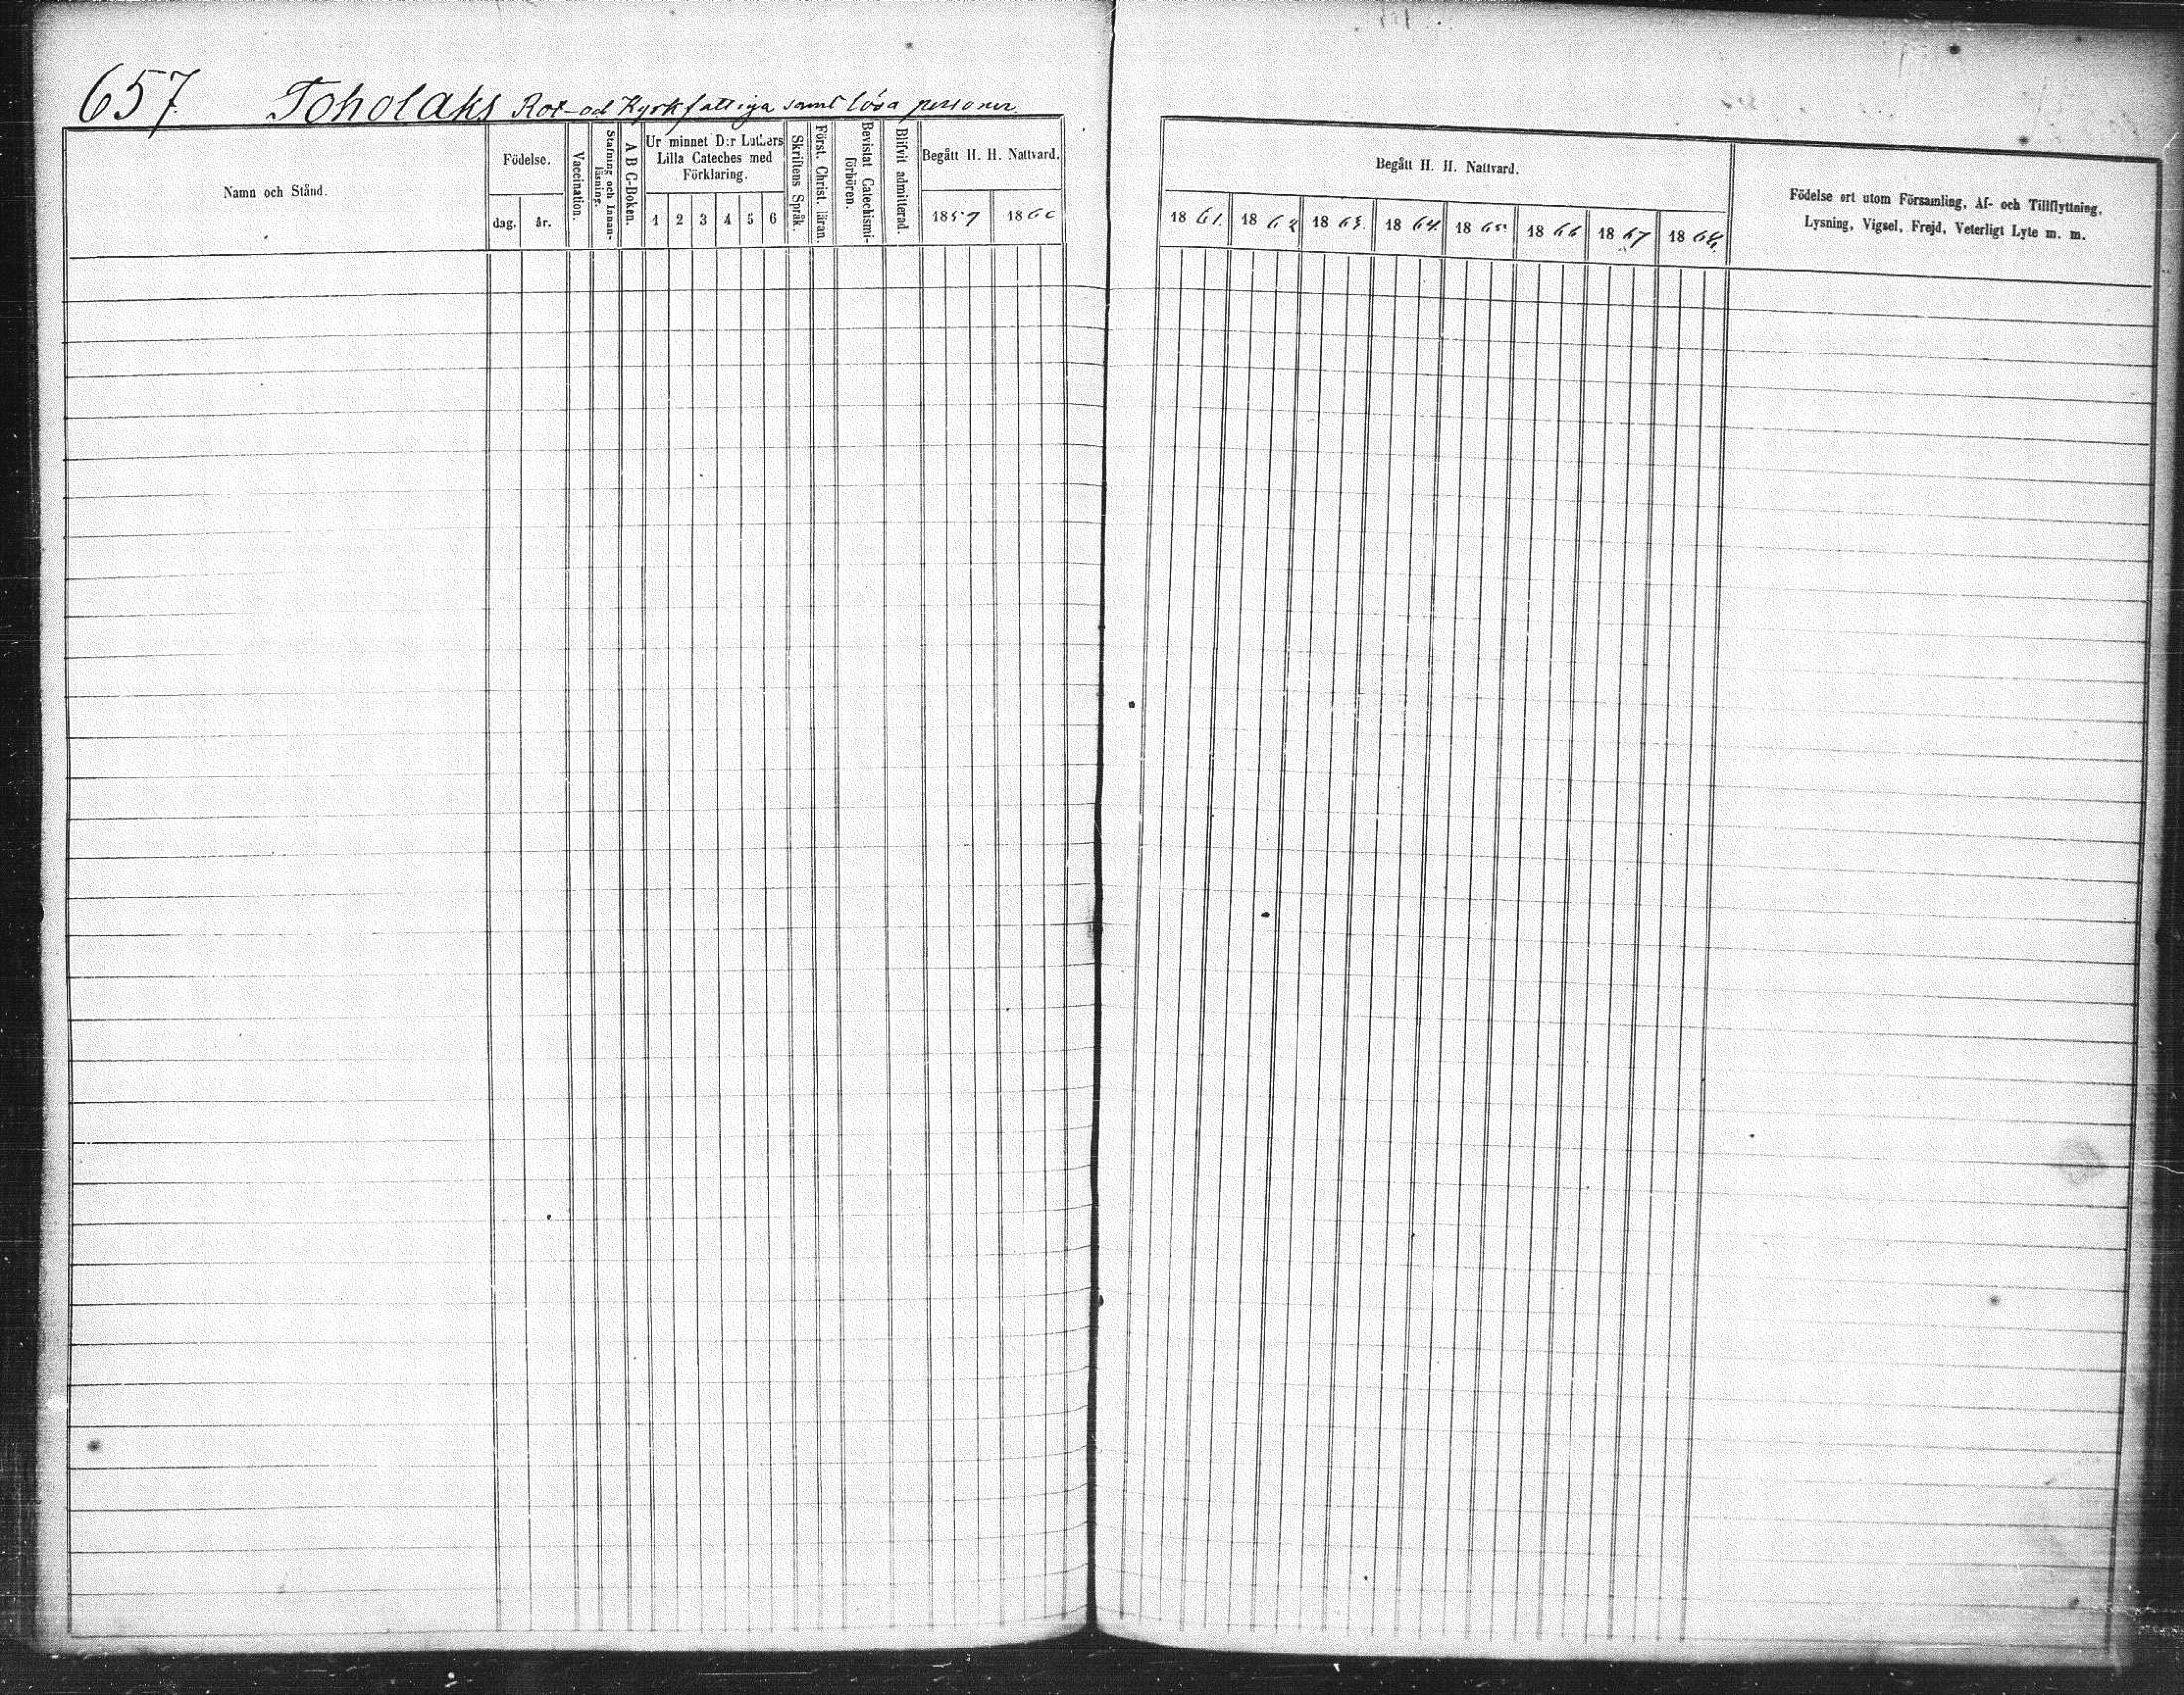 657. Toholaks Rot- och Kyrkfattiga samt lösa personer.
Namn och Stånd.
Födelse.
dag. år.
Vaccination.
Stafning och Innan-
läsning.
A B C-Boken.
Ur minnet D:r Luthers
Lilla Cateches med
Förklaring.
1 2 3 4 5 6
Skriftens Språk.
Först. Christ. läran.
Bevistat Catechismi-
förhören.
Blifvit admitterad.
Begått H. H. Nattvard.
1859 1860
Begått H. H. Nattvard.
1861. 1862 1863. 1864. 1865. 1866 1867 1868.
Födelse ort utom Församling, Af- och Tillflyttning,
Lysning, Vigsel, Frejd, Veterligt Lyte m. m.